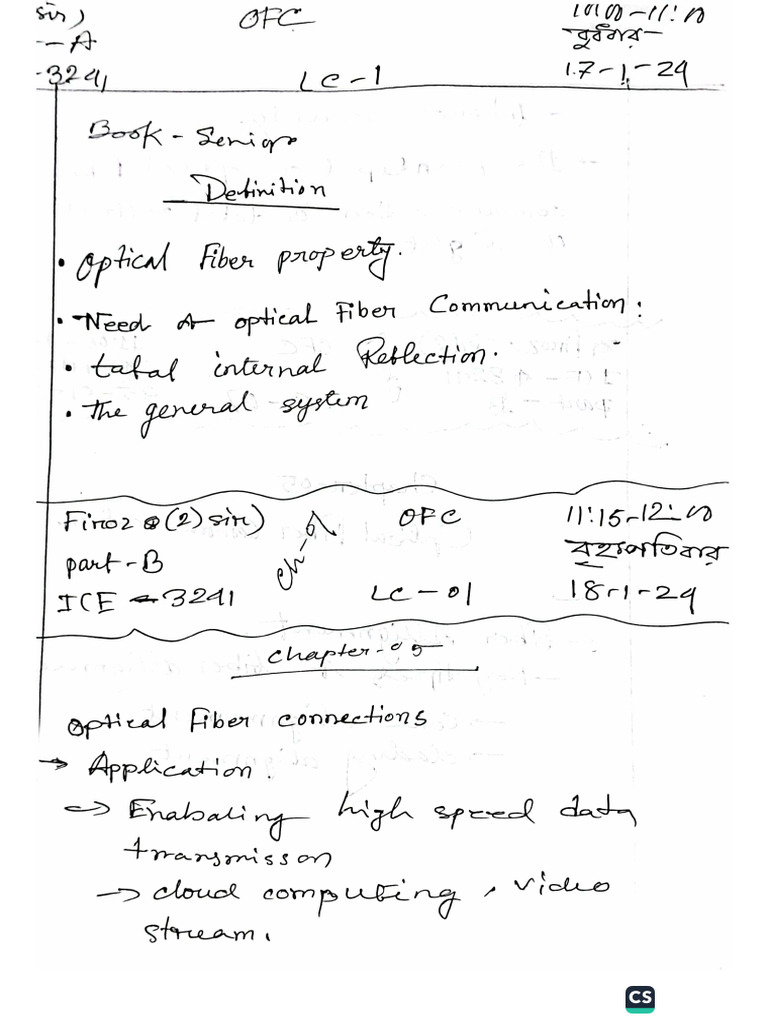 sir) OFC 10:00-11:10
-A বুধবার
-3241 LC-1 17-1-24
Book - Senior
Definition
• Optical Fiber property.
• Need A optical Fiber Communication:
• total internal Reflection.
• The general system
Firoz (2) sir) OFC 11:15-12:00
part-B Ch-01 বৃহস্পতিবার
ICE -3241 LC-01 18-1-24
Chapter-05
Optical Fiber connections
→ Application.
↪ Enabaling high speed data
transmisson
→ cloud computing, video
stream.
CS